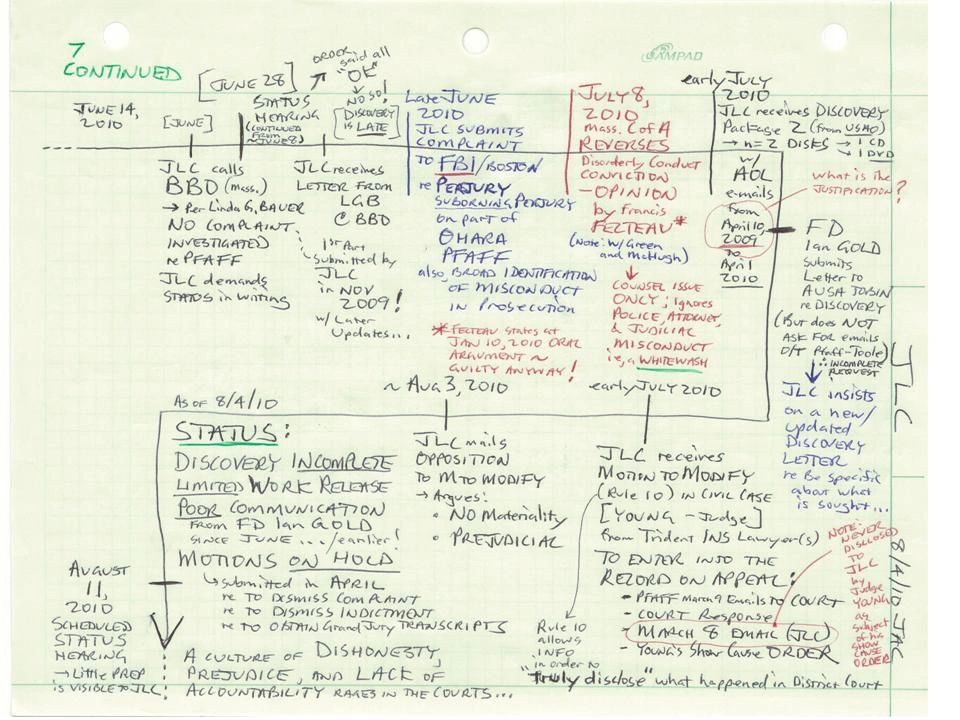 7
CONTINUED
AMPAD
JUNE 14,
2010
[JUNE]
[JUNE 28]
STATUS
HEARING
(CONTINUED
FROM
~JUNE 8)
ORDER
said all
"OK"
NO SO!
[DISCOVERY
is LATE]
JLC calls
BBO (mass.)
→ Per Linda G. BAUER
NO COMPLAINT
INVESTIGATED
re PFAFF
JLC demands
STATUS in WRITING
JLC receives
LETTER FROM
LGB
@ BBO
1st Part
Submitted by
JLC
in NOV
2009!
w/ Later
Updates...
Late JUNE
2010
JLC SUBMITS
COMPLAINT
TO FBI/BOSTON
re PERJURY
SUBORNING PERJURY
on part of
OHARA
PFAFF
also, BROAD IDENTIFICATION
OF MISCONDUCT
IN PROSECUTION
JULY 8,
2010
Mass. C of A
REVERSES
Disorderly Conduct
CONVICTION
- OPINION
by Francis
FECTEAU *
(Note: w/ Green
and McHugh)
COUNSEL ISSUE
ONLY; Ignores
POLICE, ATTORNEY,
& JUDICIAL
MISCONDUCT
i.e, a WHITEWASH
* FECTEAU states at
JAN 10, 2010 ORAL
ARGUMENT ~
GUILTY ANYWAY!
early JULY
2010
JLC receives DISCOVERY
Package 2 (from USAO)
→ n=2 DISKS → 1 CD
→ 1 DVD
w/
AOL
e-mails
from
April 10,
2009
to
April
2010
what is the
JUSTIFICATION?
FD
Ian GOLD
submits
Letter to
AUSA TOBIN
re DISCOVERY
(But does NOT
ASK FOR emails
O/T Pfaff-Toole)
∴ INCOMPLETE
REQUEST
JLC insists
on a new/
updated
DISCOVERY
LETTER
re Be specific
about what
is sought...
JLC
8/4/10 JAC
~ Aug 3, 2010
JLC mails
OPPOSITION
to M TO MODIFY
→ Argues:
• NO Materiality
• PREJUDICIAL
early JULY 2010
JLC receives
MOTION TO MODIFY
(Rule 10) IN CIVIL CASE
[YOUNG - Judge]
from Trident INS Lawyer(s)
TO ENTER INTO THE
RECORD ON APPEAL:
- PFAFF March 9 Emails to COURT
- COURT Response
- MARCH 8 EMAIL (JLC)
- Young's Show Cause ORDER
NOTE:
NEVER
DISCLOSED
TO
JLC
by
Judge
YOUNG
as
subject
of his
SHOW
CAUSE
ORDER
Rule 10
allows
INFO
"in order to
"truly disclose" what happened in District Court
As of 8/4/10
STATUS:
DISCOVERY INCOMPLETE
LIMITED WORK RELEASE
POOR COMMUNICATION
FROM FD Ian GOLD
SINCE JUNE.../earlier!
MOTIONS ON HOLD
submitted in APRIL
re TO DISMISS COMPLAINT
re TO DISMISS INDICTMENT
re TO OBTAIN Grand Jury TRANSCRIPTS
AUGUST
11,
2010
SCHEDULED
STATUS
HEARING
→ Little PREP
is VISIBLE to JLC!
A CULTURE OF DISHONESTY,
PREJUDICE, AND LACK OF
ACCOUNTABILITY RAGES IN THE COURTS...